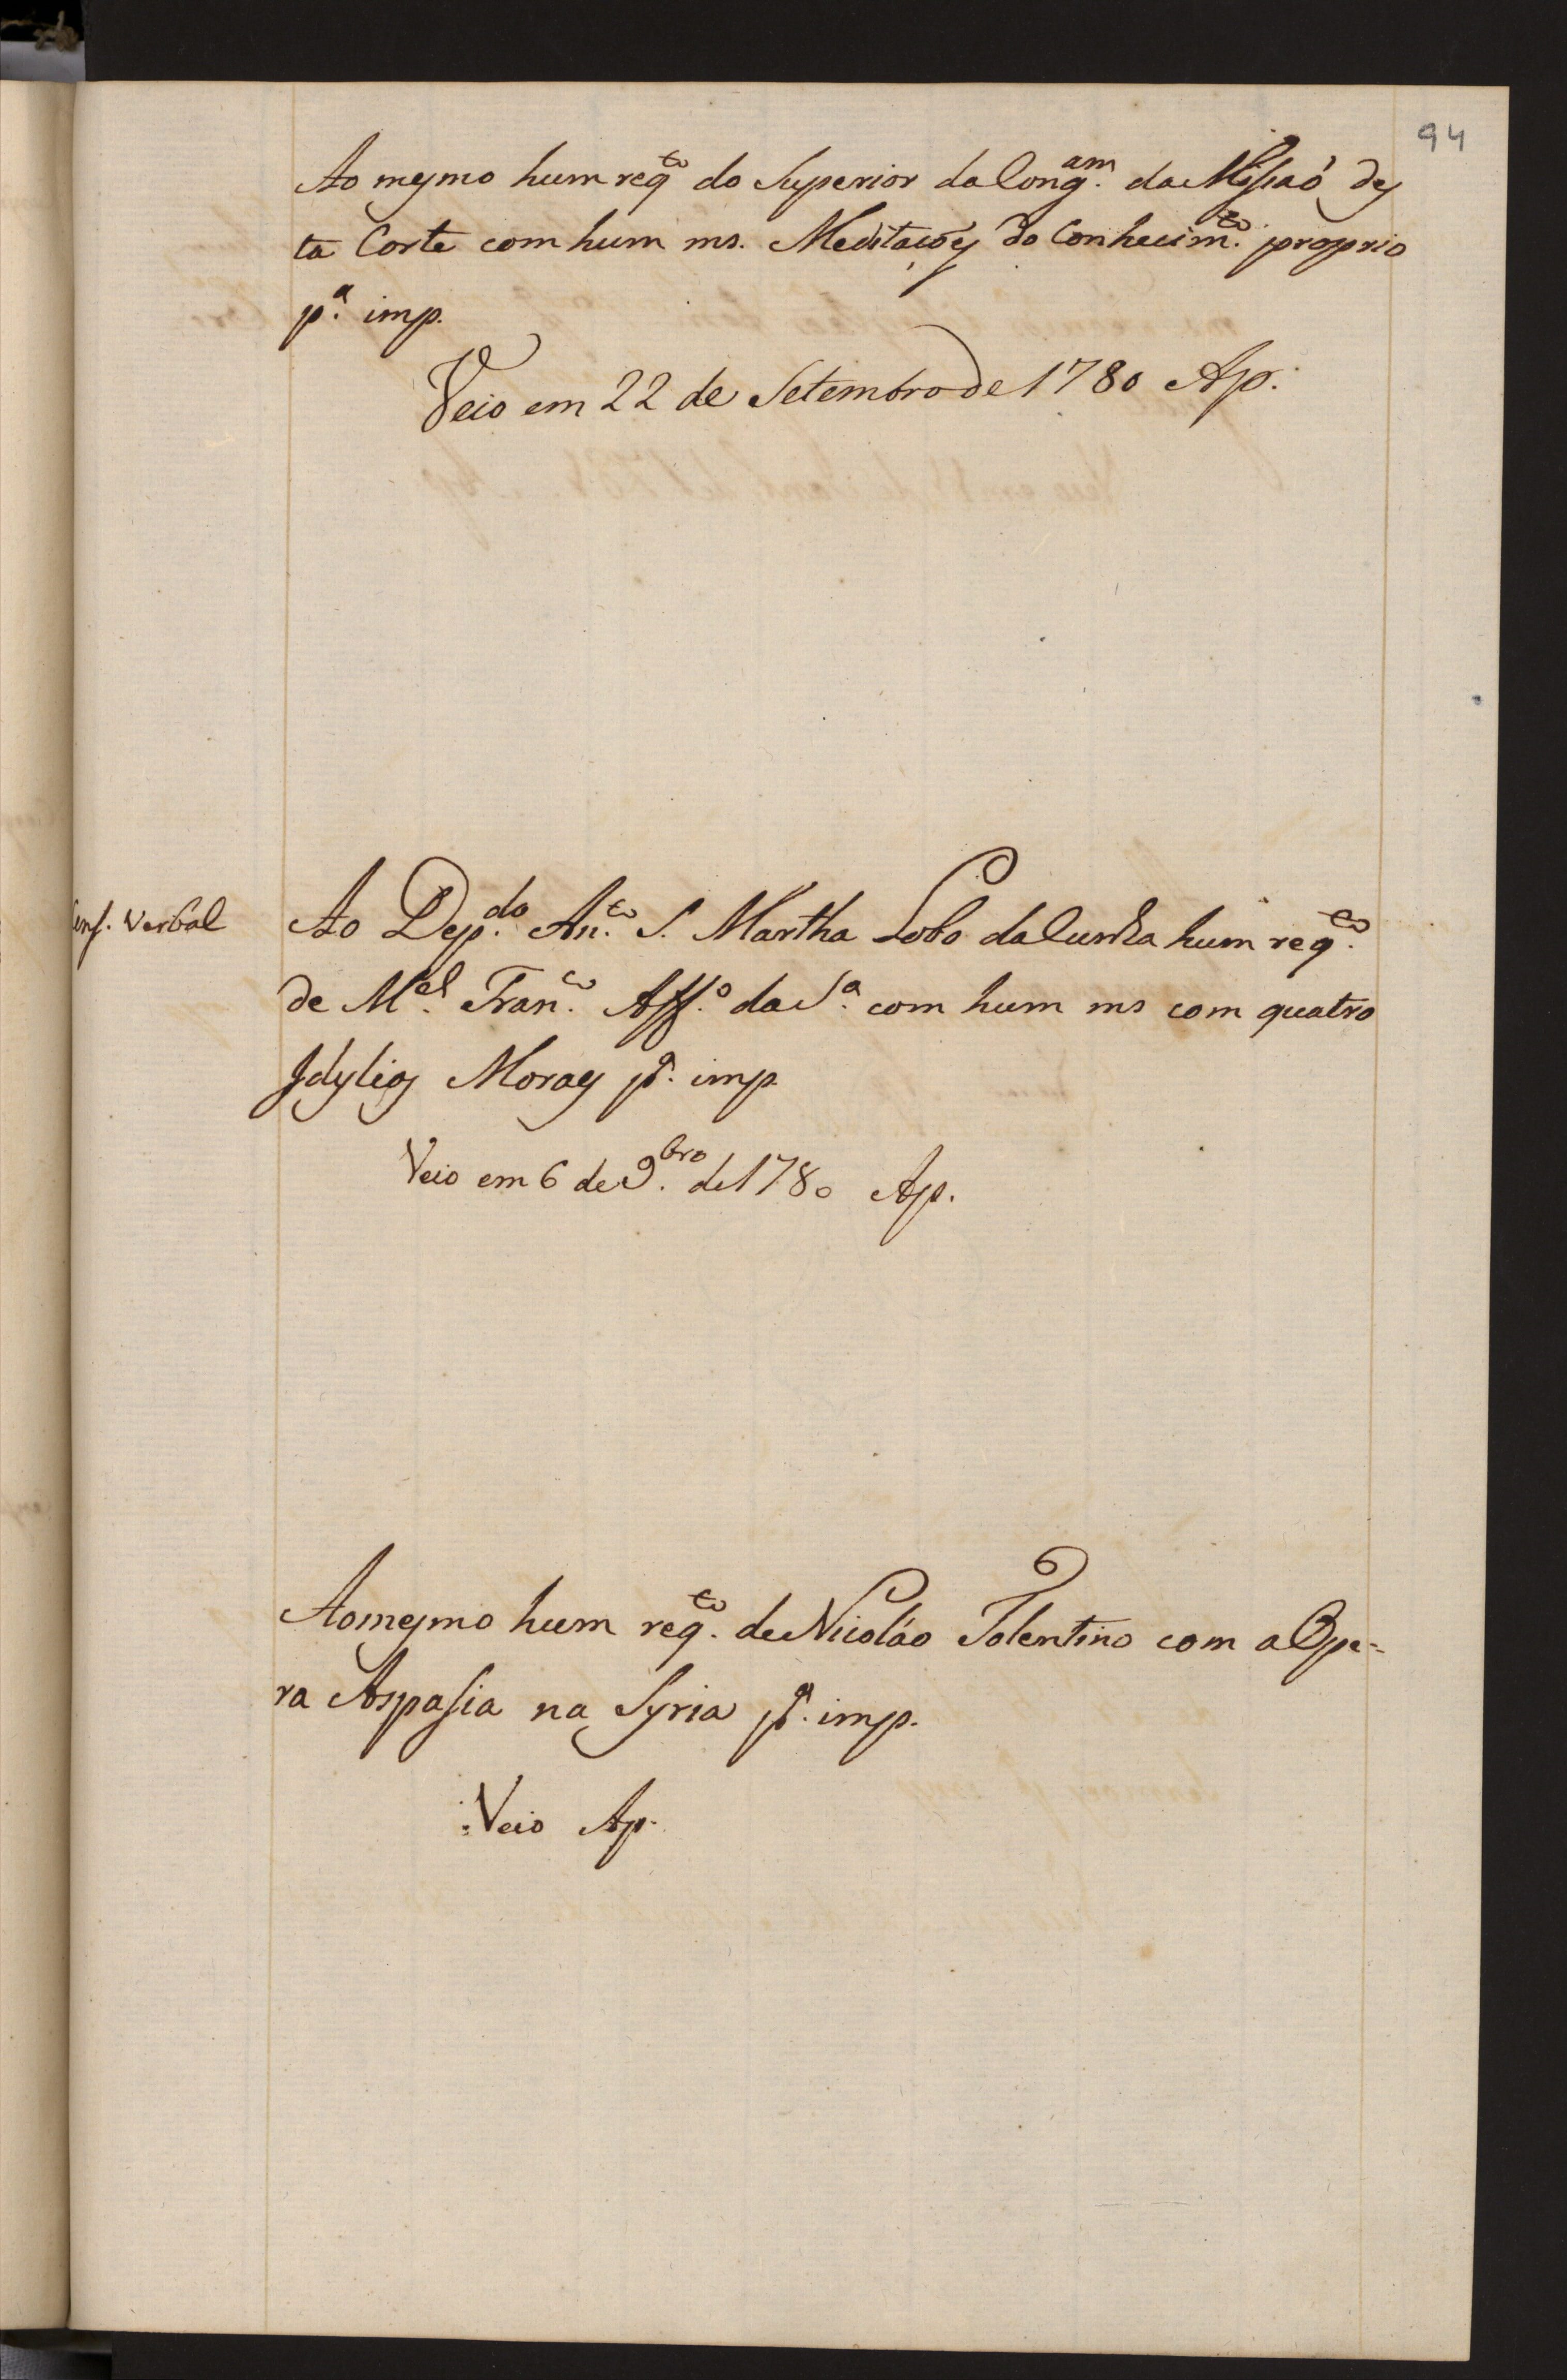 94
Ao mesmo hum reqto do Superior da Congam. da Missaõ des
ta Corte com hum ms. Meditaçoẽs do Conhecimto. proprio
pa. imp.
Veio em 22 de Setembro de 1780 Ap.
Cens. Verbal
Ao Depdo. Anto. S. Martha Lobo da Cunha hum reqto.
de Mel. Franco. Affo. da Sa. com hum ms com quatro
Idylios Moraes pa. imp
Veio em 6 de 9bro. de 1780 Ap.
Ao mesmo hum reqto. de Nicoláo Tolentino com a Ope-
ra Aspasia na Syria pa. imp.
Veio Ap.